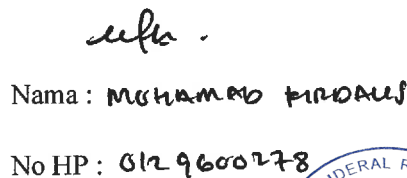 Nama : MOHAMAD FIRDAUS
No HP : 0129600278
DERAL R